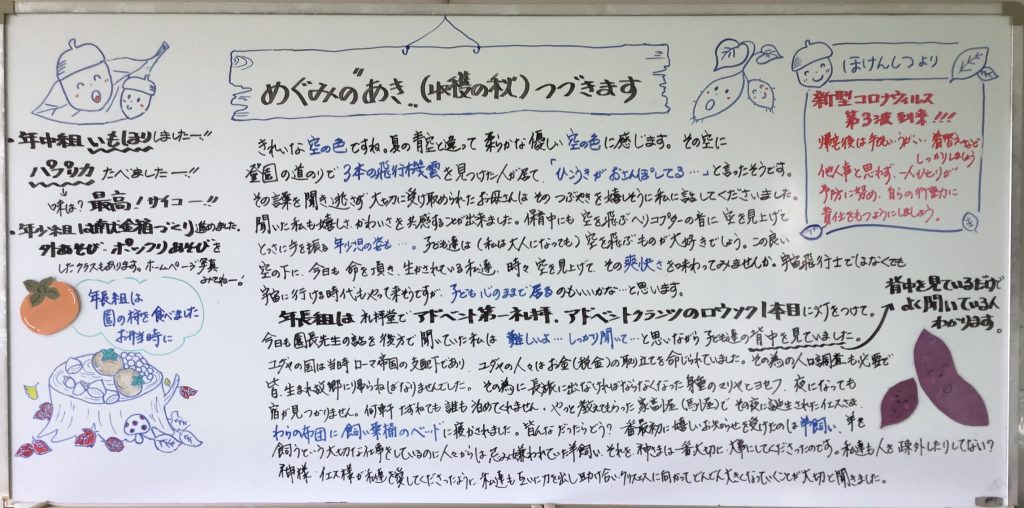 めぐみの"あき"(収穫の秋)つづきます
・年中組 いもほりしましたー!!
パプリカ たべましたー!!
味は? 最高!サイコー!!
・年少組は献金箱づくり進めました。
外あそび、ポックリあそびを
したクラスもあります。ホームページ写真
みてねー!
年長組は
園の柿を食べました
お弁当時に
きれいな空の色ですね。夏の青空と違って柔らかな優しい空の色に感じます。その空に
登園の道のりで3本の飛行機雲を見つけた人が居て、「ひこうきがおさんぽしてる…」と言ったそうです。
その言葉を聞き逃さず大切に受け取められたお母さんはそのつぶやきを嬉しそうに私に話してくださいました。
聞いた私も嬉しさ、かわいさを共感することが出来ました。保育中にも空を飛ぶヘリコプターの音に空を見上げて
とっさに手を振る年少児の姿も…。子ども達は(私は大人になっても)空を飛ぶものが大好きでしょう。この良い
空の下に、今日も命を頂き、生かされている私達、時々空を見上げて、その爽快さを味わってみませんか。宇宙飛行士ではなくても
宇宙に行ける時代もやって来そうですが、子ども心のままで居るのもいいかな…と思います。
年長組は礼拝堂でアドベント第一礼拝、アドベントクランツのロウソク1本目に灯をつけて。
今日も園長先生の話を後方で聞いていた私は 難しいよ…しっかり聞いて…と思いながら子ども達の背中を見ていました。
ユダヤの国は当時ローマ帝国の支配下であり、ユダヤの人々はお金(税金)の取り立てを命じられていました。その為の人口調査も必要で
皆、生まれ故郷に帰らねばなりませんでした。その為に長旅に出なければならなくなった身重のマリヤとヨセフ、夜になっても
宿が見つかりません。何軒たずねても誰も泊めてくれません。やっと教えてもらった家畜小屋(馬小屋)でその夜に誕生されたイエスさま
わらの布団に飼い葉桶のベードに寝かされました。皆んなだったらどう? 一番最初に嬉しいお知らせを受けたのは羊飼い、羊を
飼うという大切な仕事をしているのに人々からは忌み嫌われていた羊飼い、それを神さまは一番大切に大事にしてくださったのです。私達も人を疎外したりしてない?
神様・イエス様が私達を愛してくださったように私達も互いに力を出し助け合いクリスマスに向かってどんどん大きくなっていくことが大切と聞きました。
背中を見ているだけで
よく聞いている人
わかります。
ほけんしつより
新型コロナウィルス
第3波到来!!!
帰宅後は手洗い・うがい・着替えなど
しっかりしましょう
他人事と思わず、一人ひとりが
予防に努め、自らの行動に
責任をもつようにしましょう。